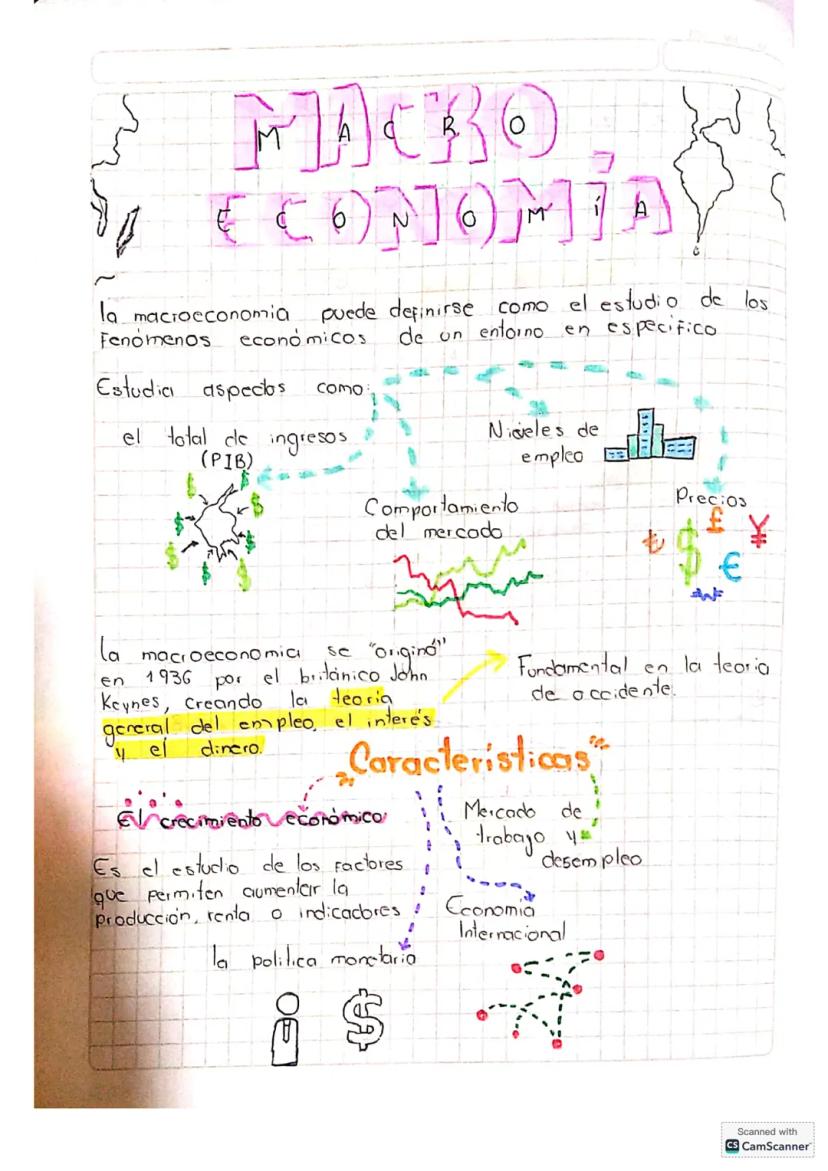 MACRO
ECONOMÍA
la macroeconomia puede definirse como el estudio de los
Fenómenos económicos de un entorno en específico
Estudia aspectos como:
el total de ingresos
(PIB)
Comportamiento
del mercado
Niveles de
empleo
Precios
la macroeconomia se "originó"
en 1936 por el británico John
Keynes, creando la teoria
general del empleo, el interés
y el dinero.
Fundamental en la teoria
de occidente.
"Características"
El crecimiento económico
Es el estudio de los factores
que permiten aumentar la
producción, renta o indicadores
la politica monetaria
Mercado de
trabajo y
desempleo
Economia
Internacional
Scanned with
CS CamScanner